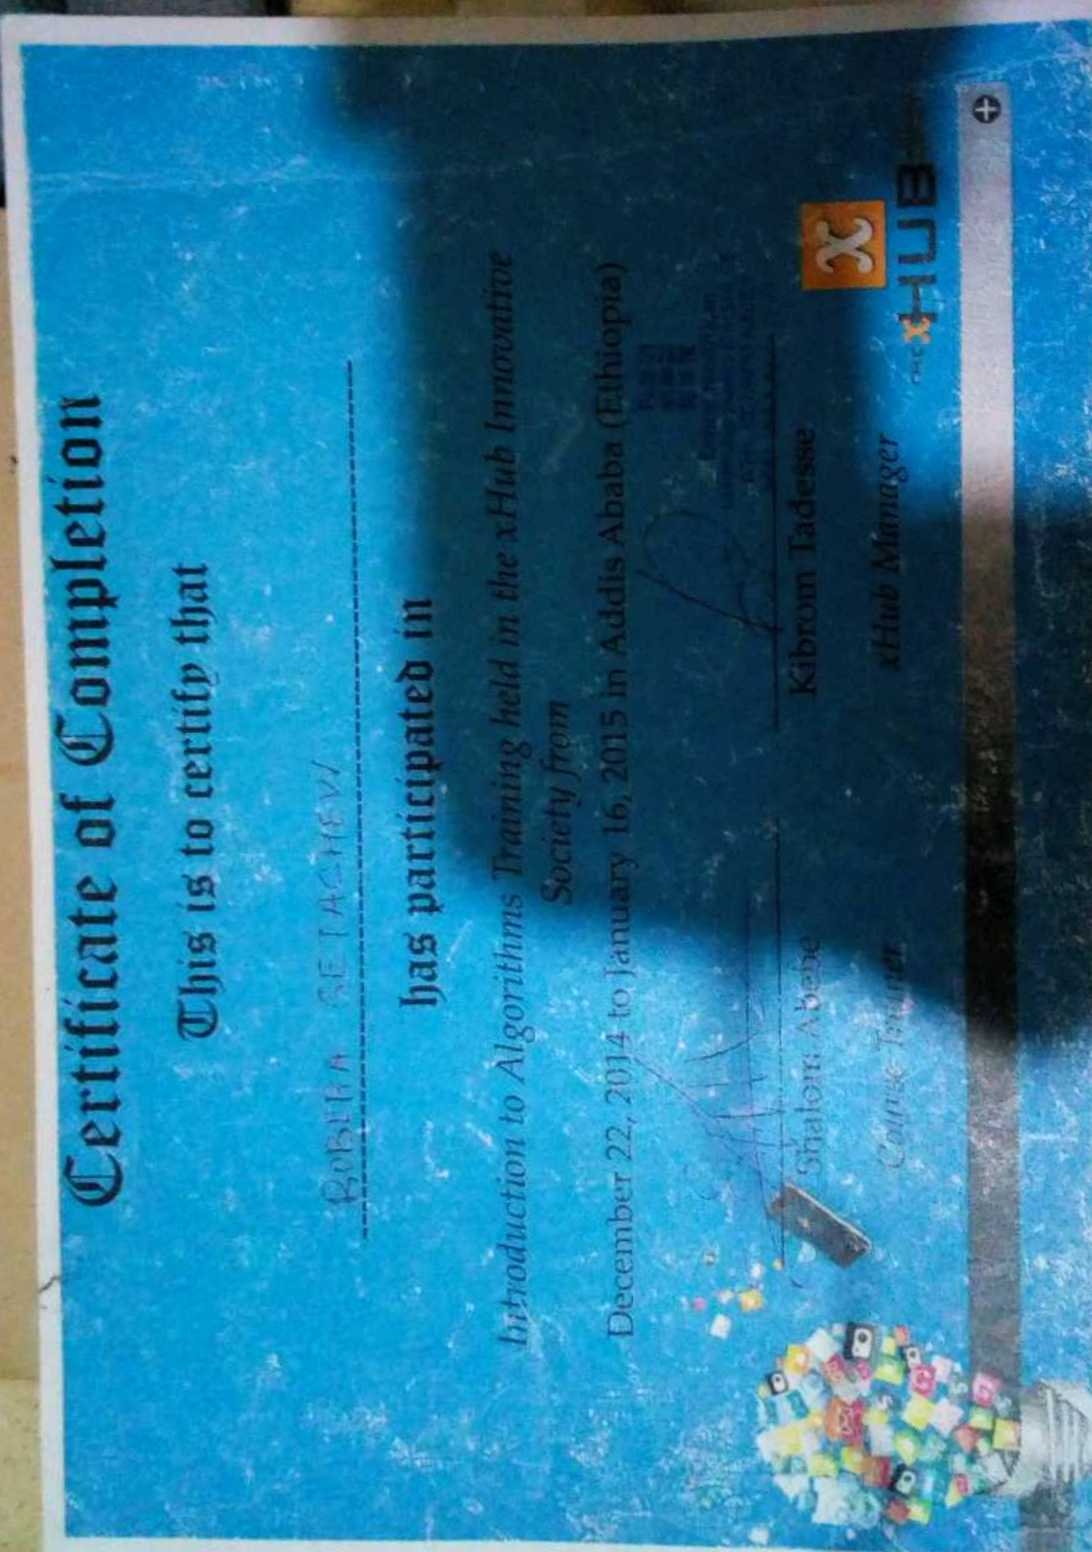 Certificate of Completion
This is to certify that
ROBERA GETACHEW
has participated in
Introduction to Algorithms Training held in the xHub Innovative
Society from
December 22, 2014 to January 16, 2015 in Addis Ababa (Ethiopia)
Shalom Abebe
Kibrom Tadesse
Course Trainer
xHub Manager
x
THE xHUB